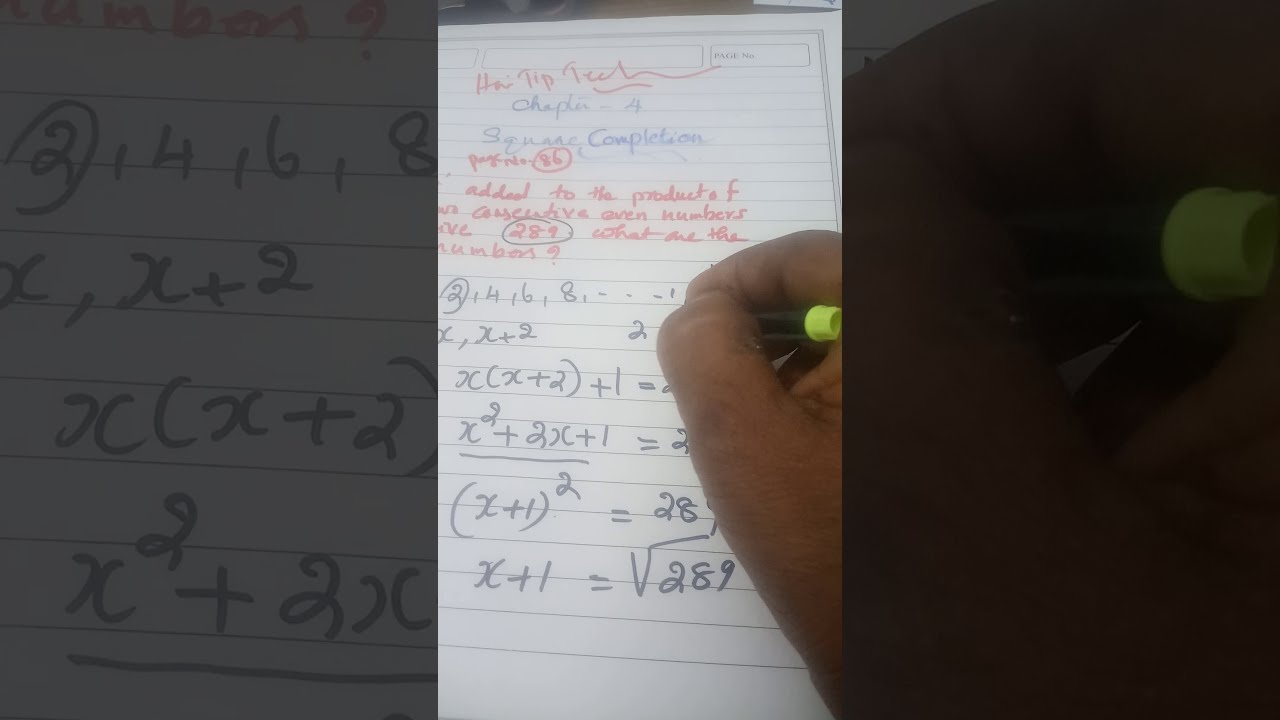 PAGE No
Chapter - 4
Square Completion
page No. 86
added to the product of
consecutive even numbers
289. what are the
numbers?
2, 4, 6, 8, - - -
x, x+2 2
x(x+2) + 1 =
x² + 2x + 1 = 2
(x+1)² = 289
x+1 = √289